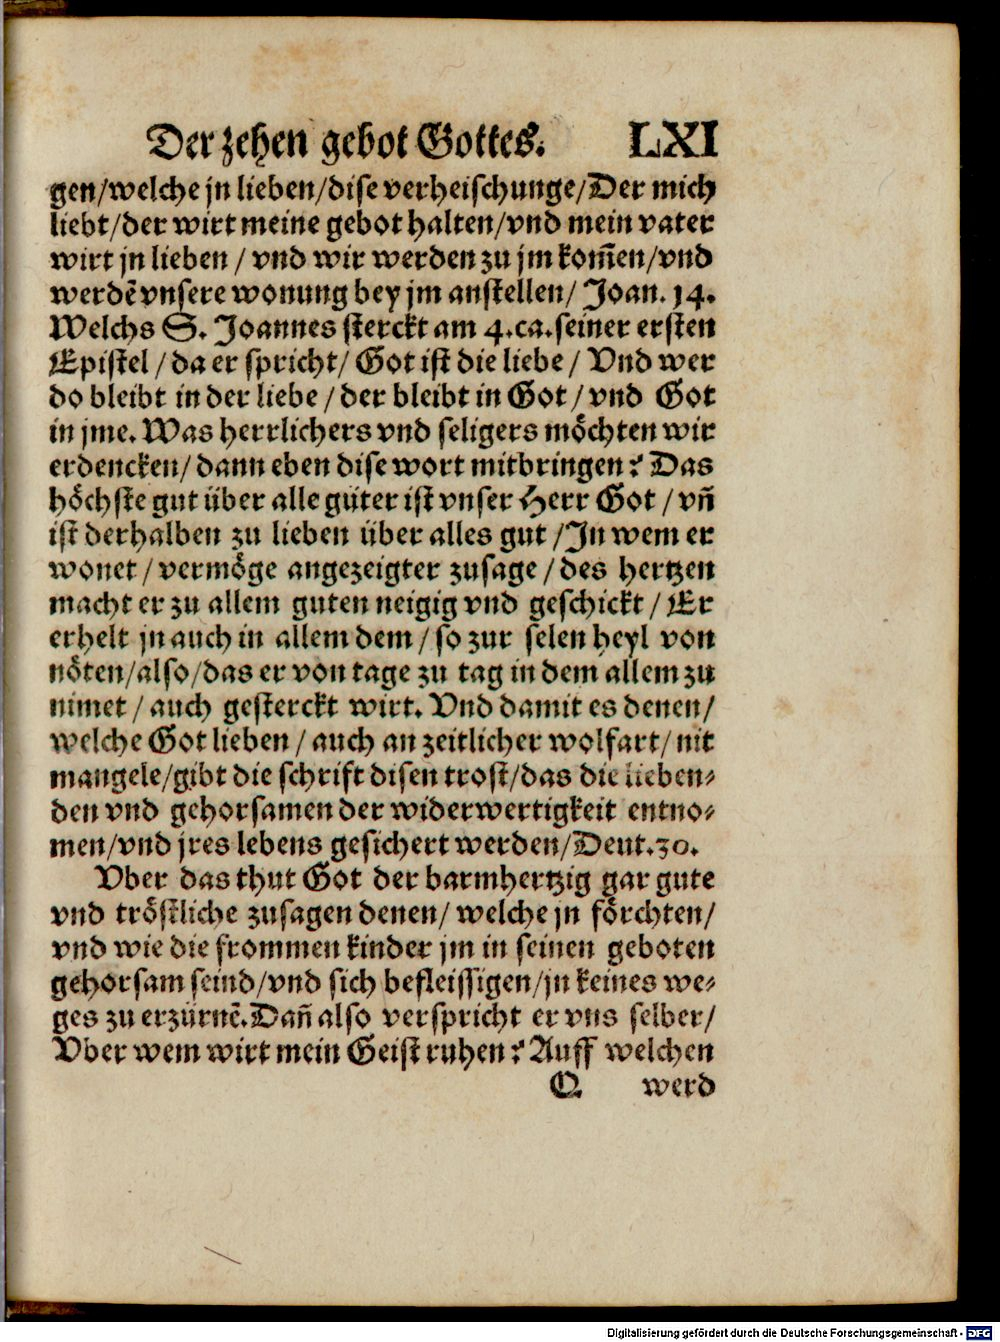 Der zehen gebot Gottes. LXI
gen/welche jn lieben/dise verheischunge/Der mich
liebt/der wirt meine gebot halten/vnd mein vater
wirt jn lieben / vnd wir werden zu jm kom̃en/vnd
werdẽ vnsere wonung bey jm anstellen/ Joan. 14.
Welchs S. Joannes sterckt am 4.ca.seiner ersten
Epistel / da er spricht/ Got ist die liebe / Vnd wer
do bleibt in der liebe / der bleibt in Got / vnd Got
in jme. Was herrlichers vnd seligers möchten wir
erdencken/ dann eben dise wort mitbringen? Das
höchste gut über alle güter ist vnser Herr Got / vñ
ist derhalben zu lieben über alles gut /In wem er
wonet / vermöge angezeigter zusage / des hertzen
macht er zu allem guten neigig vnd geschickt / Er
erhelt jn auch in allem dem / so zur selen heyl von
nöten/also/das er von tage zu tag in dem allem zu
nimet / auch gesterckt wirt. Vnd damit es denen/
welche Got lieben / auch an zeitlicher wolfart/ nit
mangele/gibt die schrift disen trost/das die lieben⸗
den vnd gehorsamen der widerwertigkeit entno⸗
men/vnd jres lebens gesichert werden/Deut.30.
Vber das thut Got der barmhertzig gar gute
vnd tröstliche zusagen denen/ welche jn förchten/
vnd wie die frommen kinder jm in seinen geboten
gehorsam seind/vnd sich befleissigen/jn keines we⸗
ges zu erzürnẽ.Dañ also verspricht er vns selber/
Vber wem wirt mein Geist ruhen? Auff welchen
Q werd
Digitalisierung gefördert durch die Deutsche Forschungsgemeinschaft - DFG